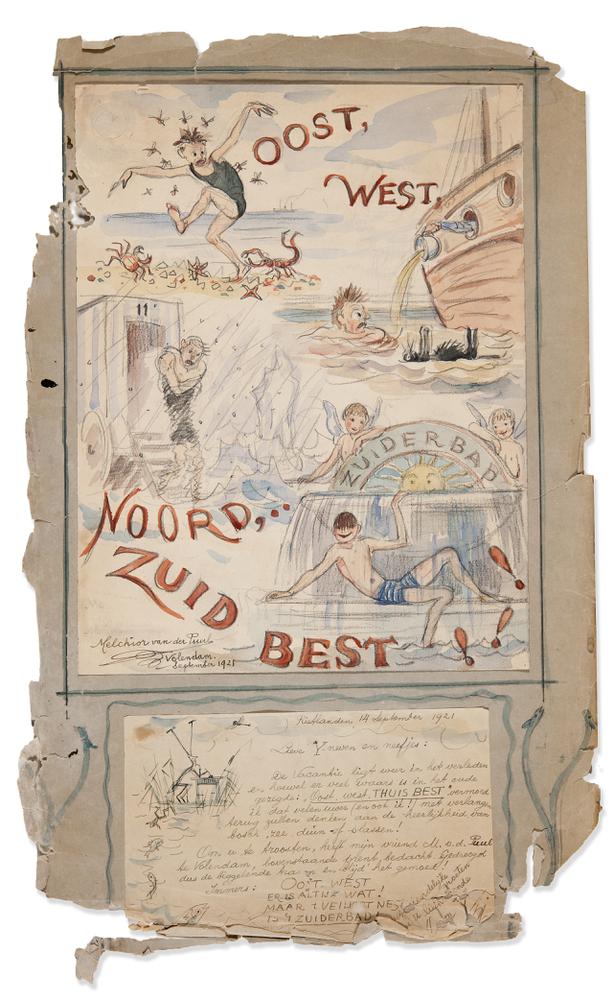 OOST,
WEST,
11
ZUIDERBAD
NOORD,
ZUID
BEST !!!
Melchior van der
Volendam.
September 1921
14 September 1921
Lieve en neefjes:
De vacantie ligt weer in het verleden
en hoewel er veel waars is in het oude
gezegde: "Oost, west, THUIS BEST" vermoed
ik dat velen uwer (en ook ik!!) met
terug zullen denken aan de heerlijkheid van
bosch, zee, duin of plassen!
Om u te troosten, heeft mijn vriend M. v. d.
te Volendam, bovenstaande prent bedacht
dus de haar en blijd' het gemoed!!
Immers: OOST, WEST
ER IS ALTIJD WAT!
MAAR 'T NEST
IS 'T ZUIDERBAD!